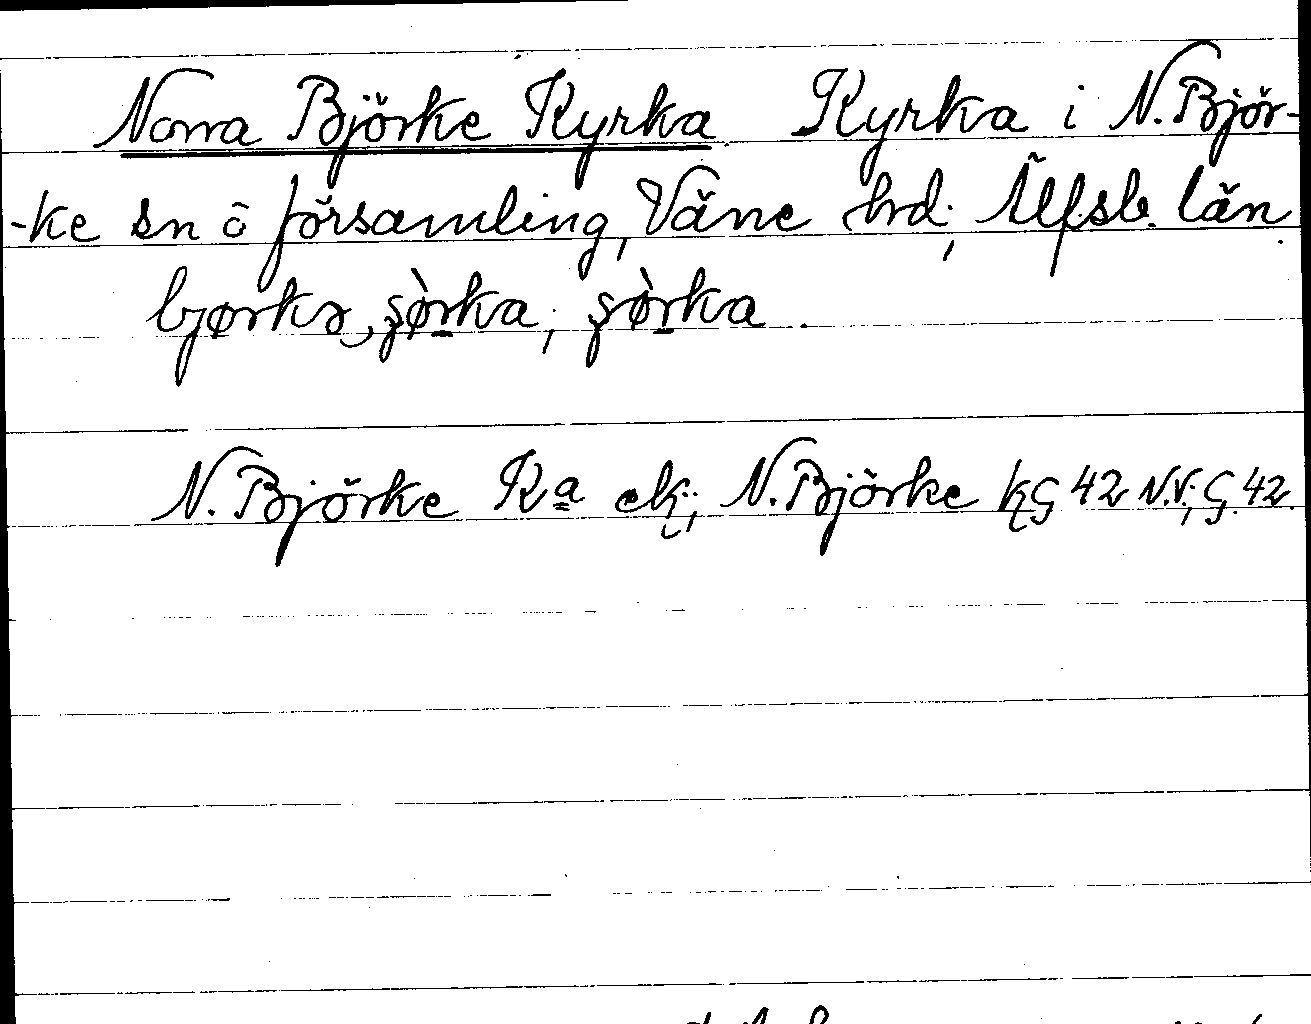 Norra Björke Kyrka Kyrka i N. Björ-
-ke sn o församling, Väne hrd; Älfsb. län.
N. Björke Ka ek; N. Björke kG 42 N.V.; G. 42.